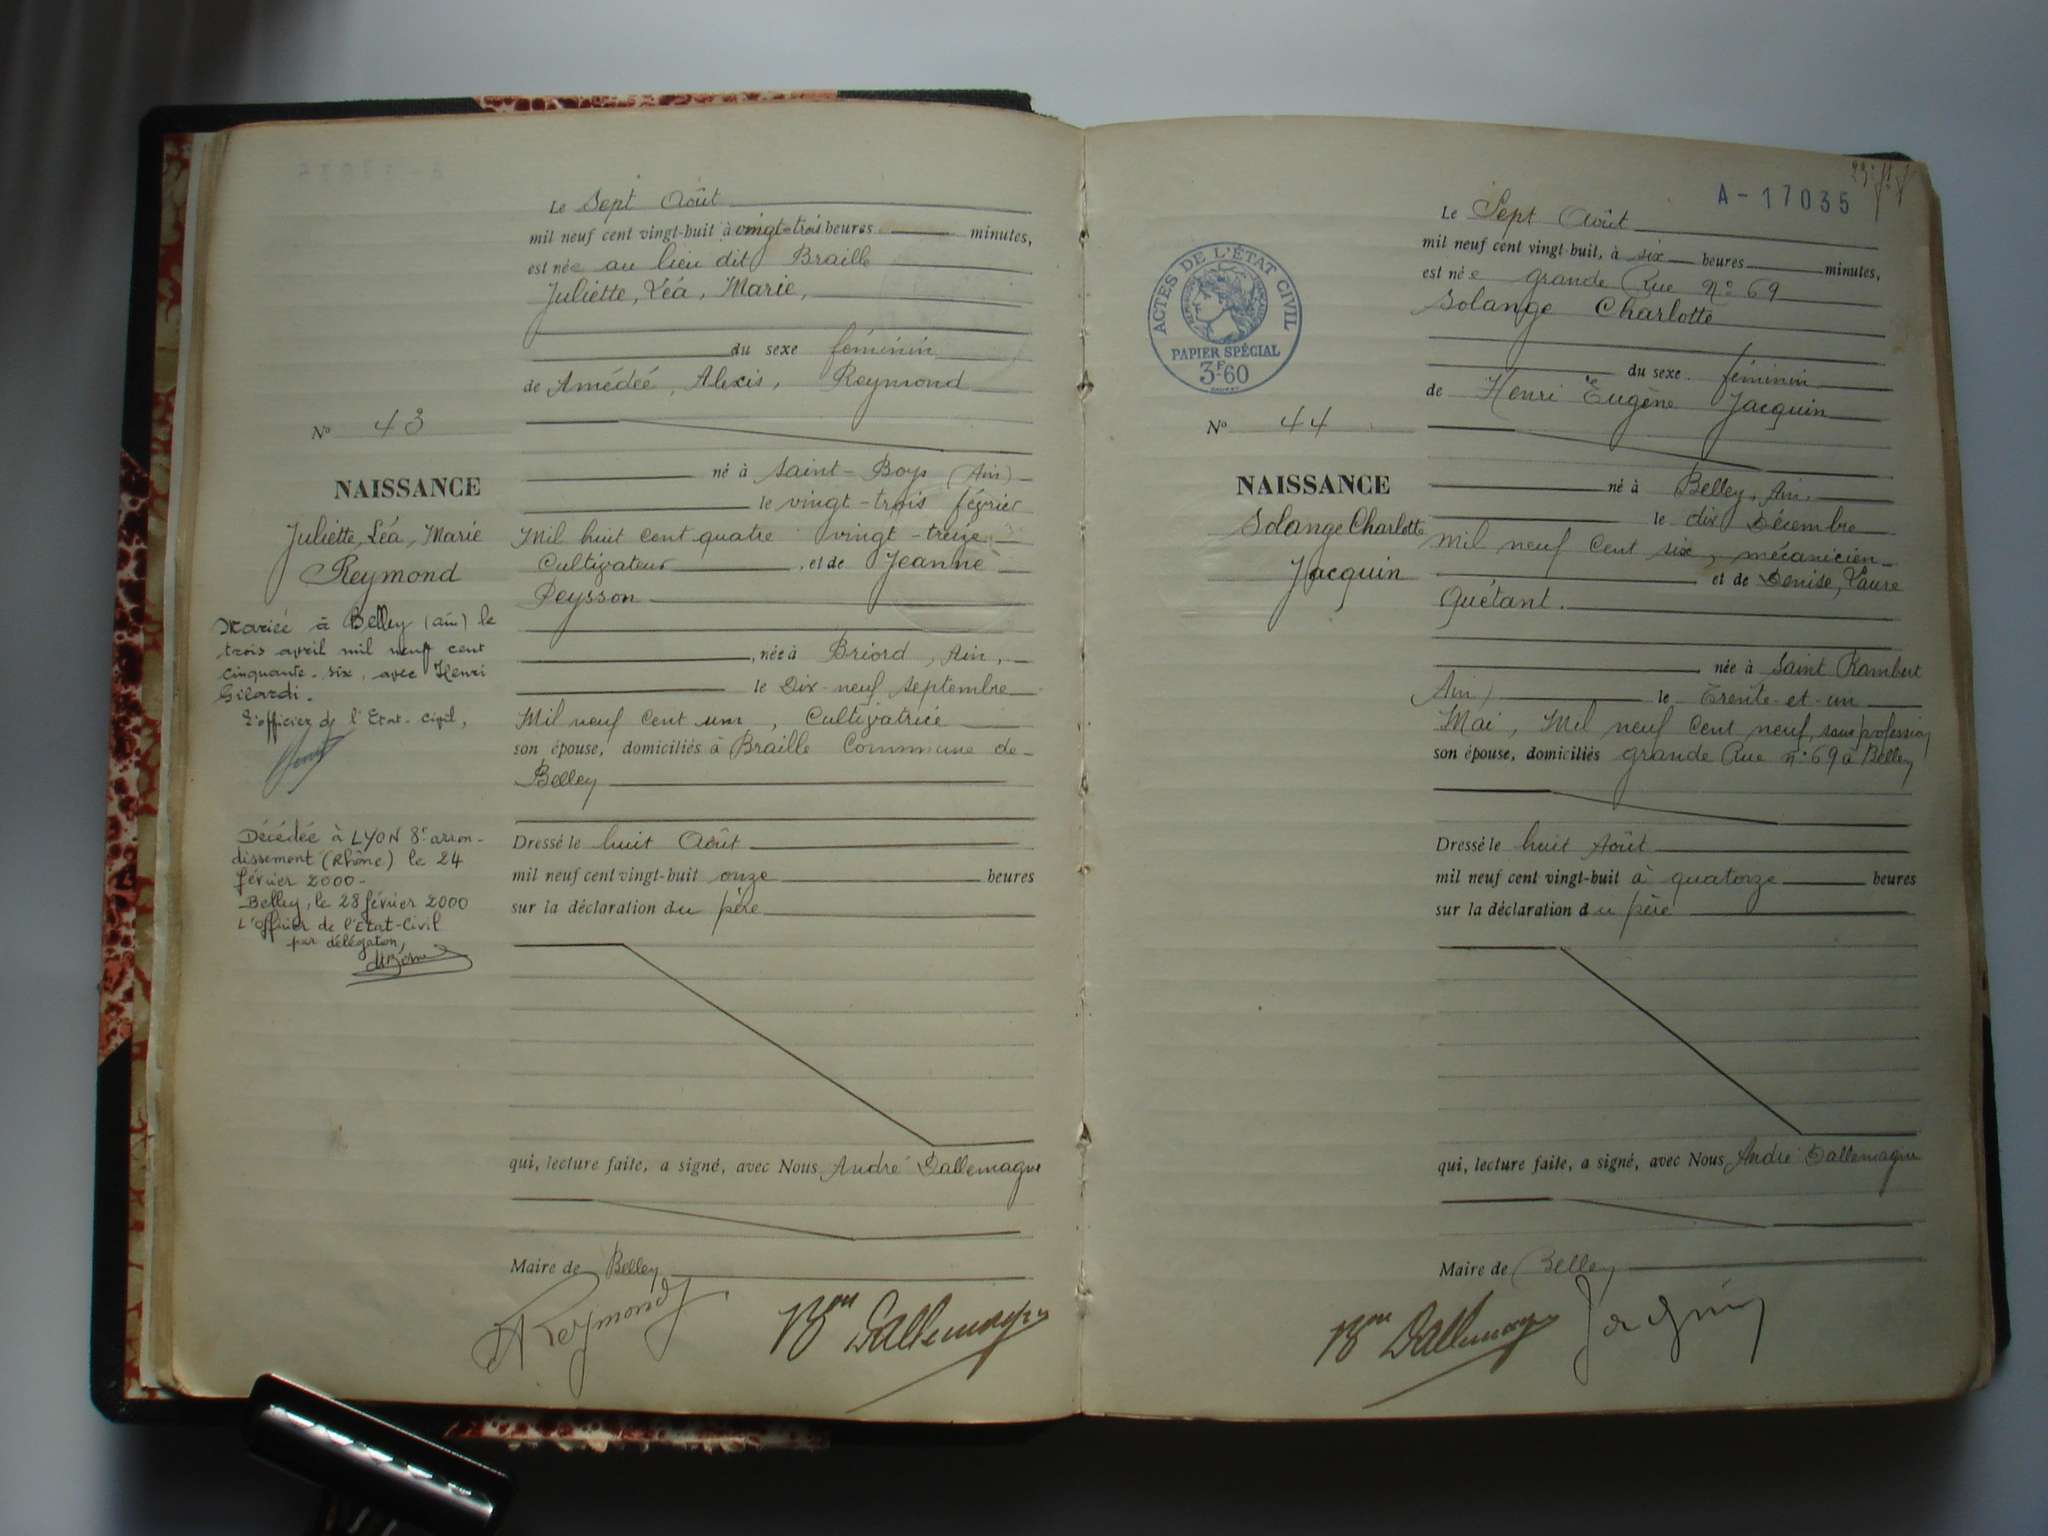 Le Sept Août
mil neuf cent vingt-huit à vingt-trois heures minutes,
est née au lieu dit Braille
Juliette, Léa, Marie,
du sexe féminin
de Amédéé, Alexis, Reymond
né à Saint-Boys (Ain)
le vingt-trois février
Mil huit cent quatre vingt-treize
Cultivateur, et de Jeanne
Peysson
, née à Briord, Ain,
le Dix-neuf Septembre
Mil neuf cent un, Cultivatrice
son épouse, domiciliés à Braille Commune de
Belley
Dressé le huit Août
mil neuf cent vingt-huit onze heures
sur la déclaration du père
qui, lecture faite, a signé, avec Nous André Dallemagne
Maire de Belley
Reymond
Dallemagne
N° 43
NAISSANCE
Juliette, Léa, Marie
Reymond
Mariée à Belley (ain) le
trois avril mil neuf cent
cinquante-six, avec Henri
Gilardi.
L'officier de l'Etat-civil,
Décédée à LYON 8e arron-
dissement (Rhône) le 24
février 2000-
Belley, le 28 février 2000
L'Officier de l'Etat-Civil
par délégation,
A-17035
ACTES DE L'ÉTAT CIVIL
PAPIER SPÉCIAL
3F60
N° 44
NAISSANCE
Solange Charlotte
Jacquin
Le Sept Août
mil neuf cent vingt-huit, à six heures minutes,
est née grande Rue n° 69
Solange Charlotte
du sexe féminin
de Henri Eugène Jacquin
né à Belley, Ain,
le dix Décembre
Mil neuf cent six, mécanicien
et de Denise, Laure
Quétant.
née à Saint Rambert
Ain) le Trente-et-un
Mai, Mil neuf cent neuf, sans profession
son épouse, domiciliés grande Rue n° 69 à Belley
Dressé le huit Août
mil neuf cent vingt-huit à quatorze heures
sur la déclaration du père
qui, lecture faite, a signé, avec Nous André Dallemagne
Maire de Belley
Dallemagne
Jacquin